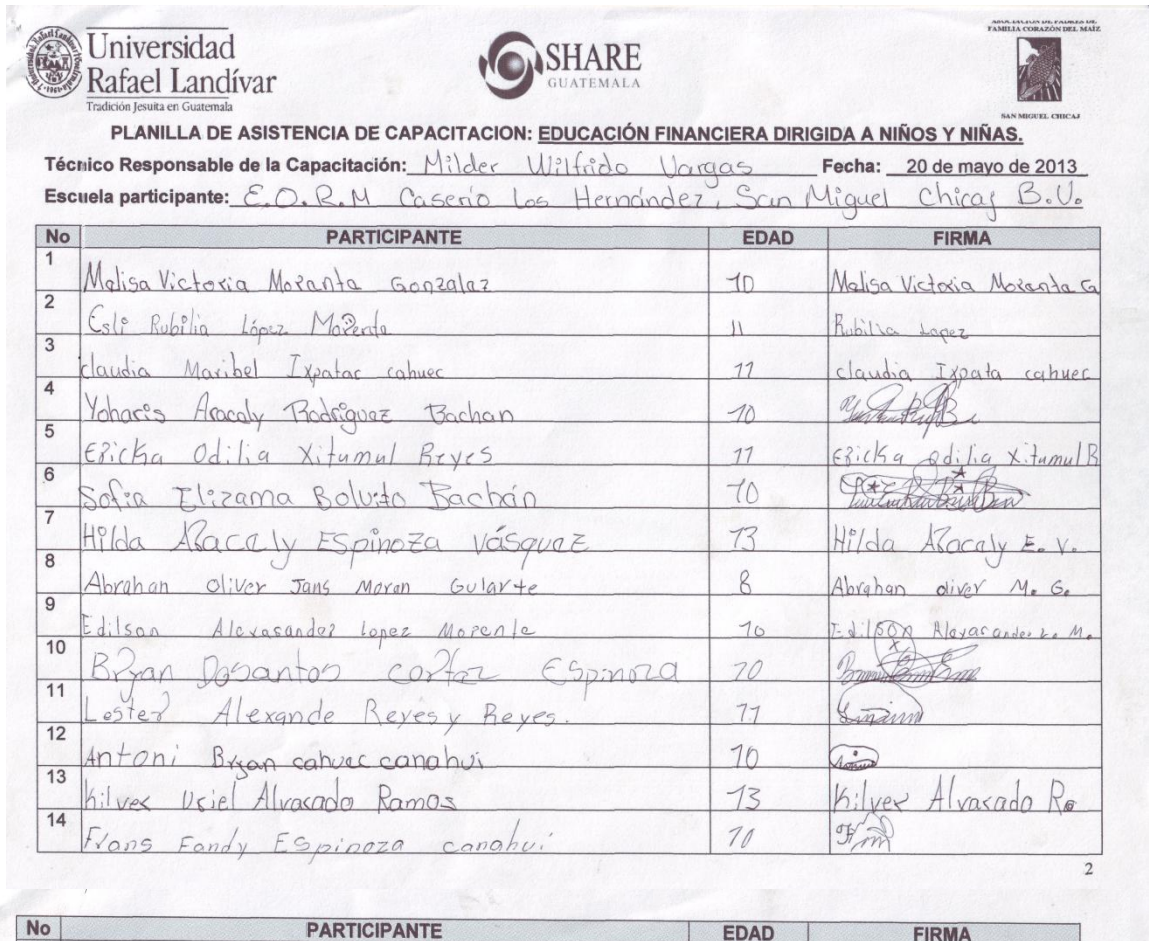 Universidad
Rafael Landívar
Tradición Jesuita en Guatemala
SHARE
GUATEMALA
ASOCIACION DE PADRES DE
FAMILIA CORAZÓN DEL MAÍZ
SAN MIGUEL CHICAJ
PLANILLA DE ASISTENCIA DE CAPACITACION: EDUCACIÓN FINANCIERA DIRIGIDA A NIÑOS Y NIÑAS.
Técnico Responsable de la Capacitación: Milder Wilfrido Vargas Fecha: 20 de mayo de 2013
Escuela participante: E.O.R.M Caserío Los Hernández, San Miguel Chicaj B.V.
No PARTICIPANTE EDAD FIRMA
1 Melisa Victoria Moranta Gonzalaz 10 Melisa Victoria Moranta Ga
2 Esli Rubilia López Morente 11 Rubilia Lopez
3 claudia Maribel Ixpatac cahuec 11 claudia Ixpata cahuec
4 Yoharis Aracaly Rodriguez Bachan 10
5 Ericka Odilia Xitumul Reyes 11 Ericka odilia Xitumul R
6 Sofia Elizama Bolvito Bachán 10
7 Hilda Aracely Espinoza Vásquez 13 Hilda Aracaly E. V.
8 Abrahan oliver Jans Moran Gularte 8 Abrahan oliver M. G.
9 Edilson Alexasander Lopez Morente 10 Edilson
10 Bryan Dosantos cortez Espinoza 10
11 Lester Alexande Reyes y Reyes. 11
12 Antoni Bryan cahuec canahui 10
13 Kilver Usiel Alvarado Ramos 13 Kilver Alvarado R
14 Frans Fandy Espinoza canahui 10
2
No PARTICIPANTE EDAD FIRMA